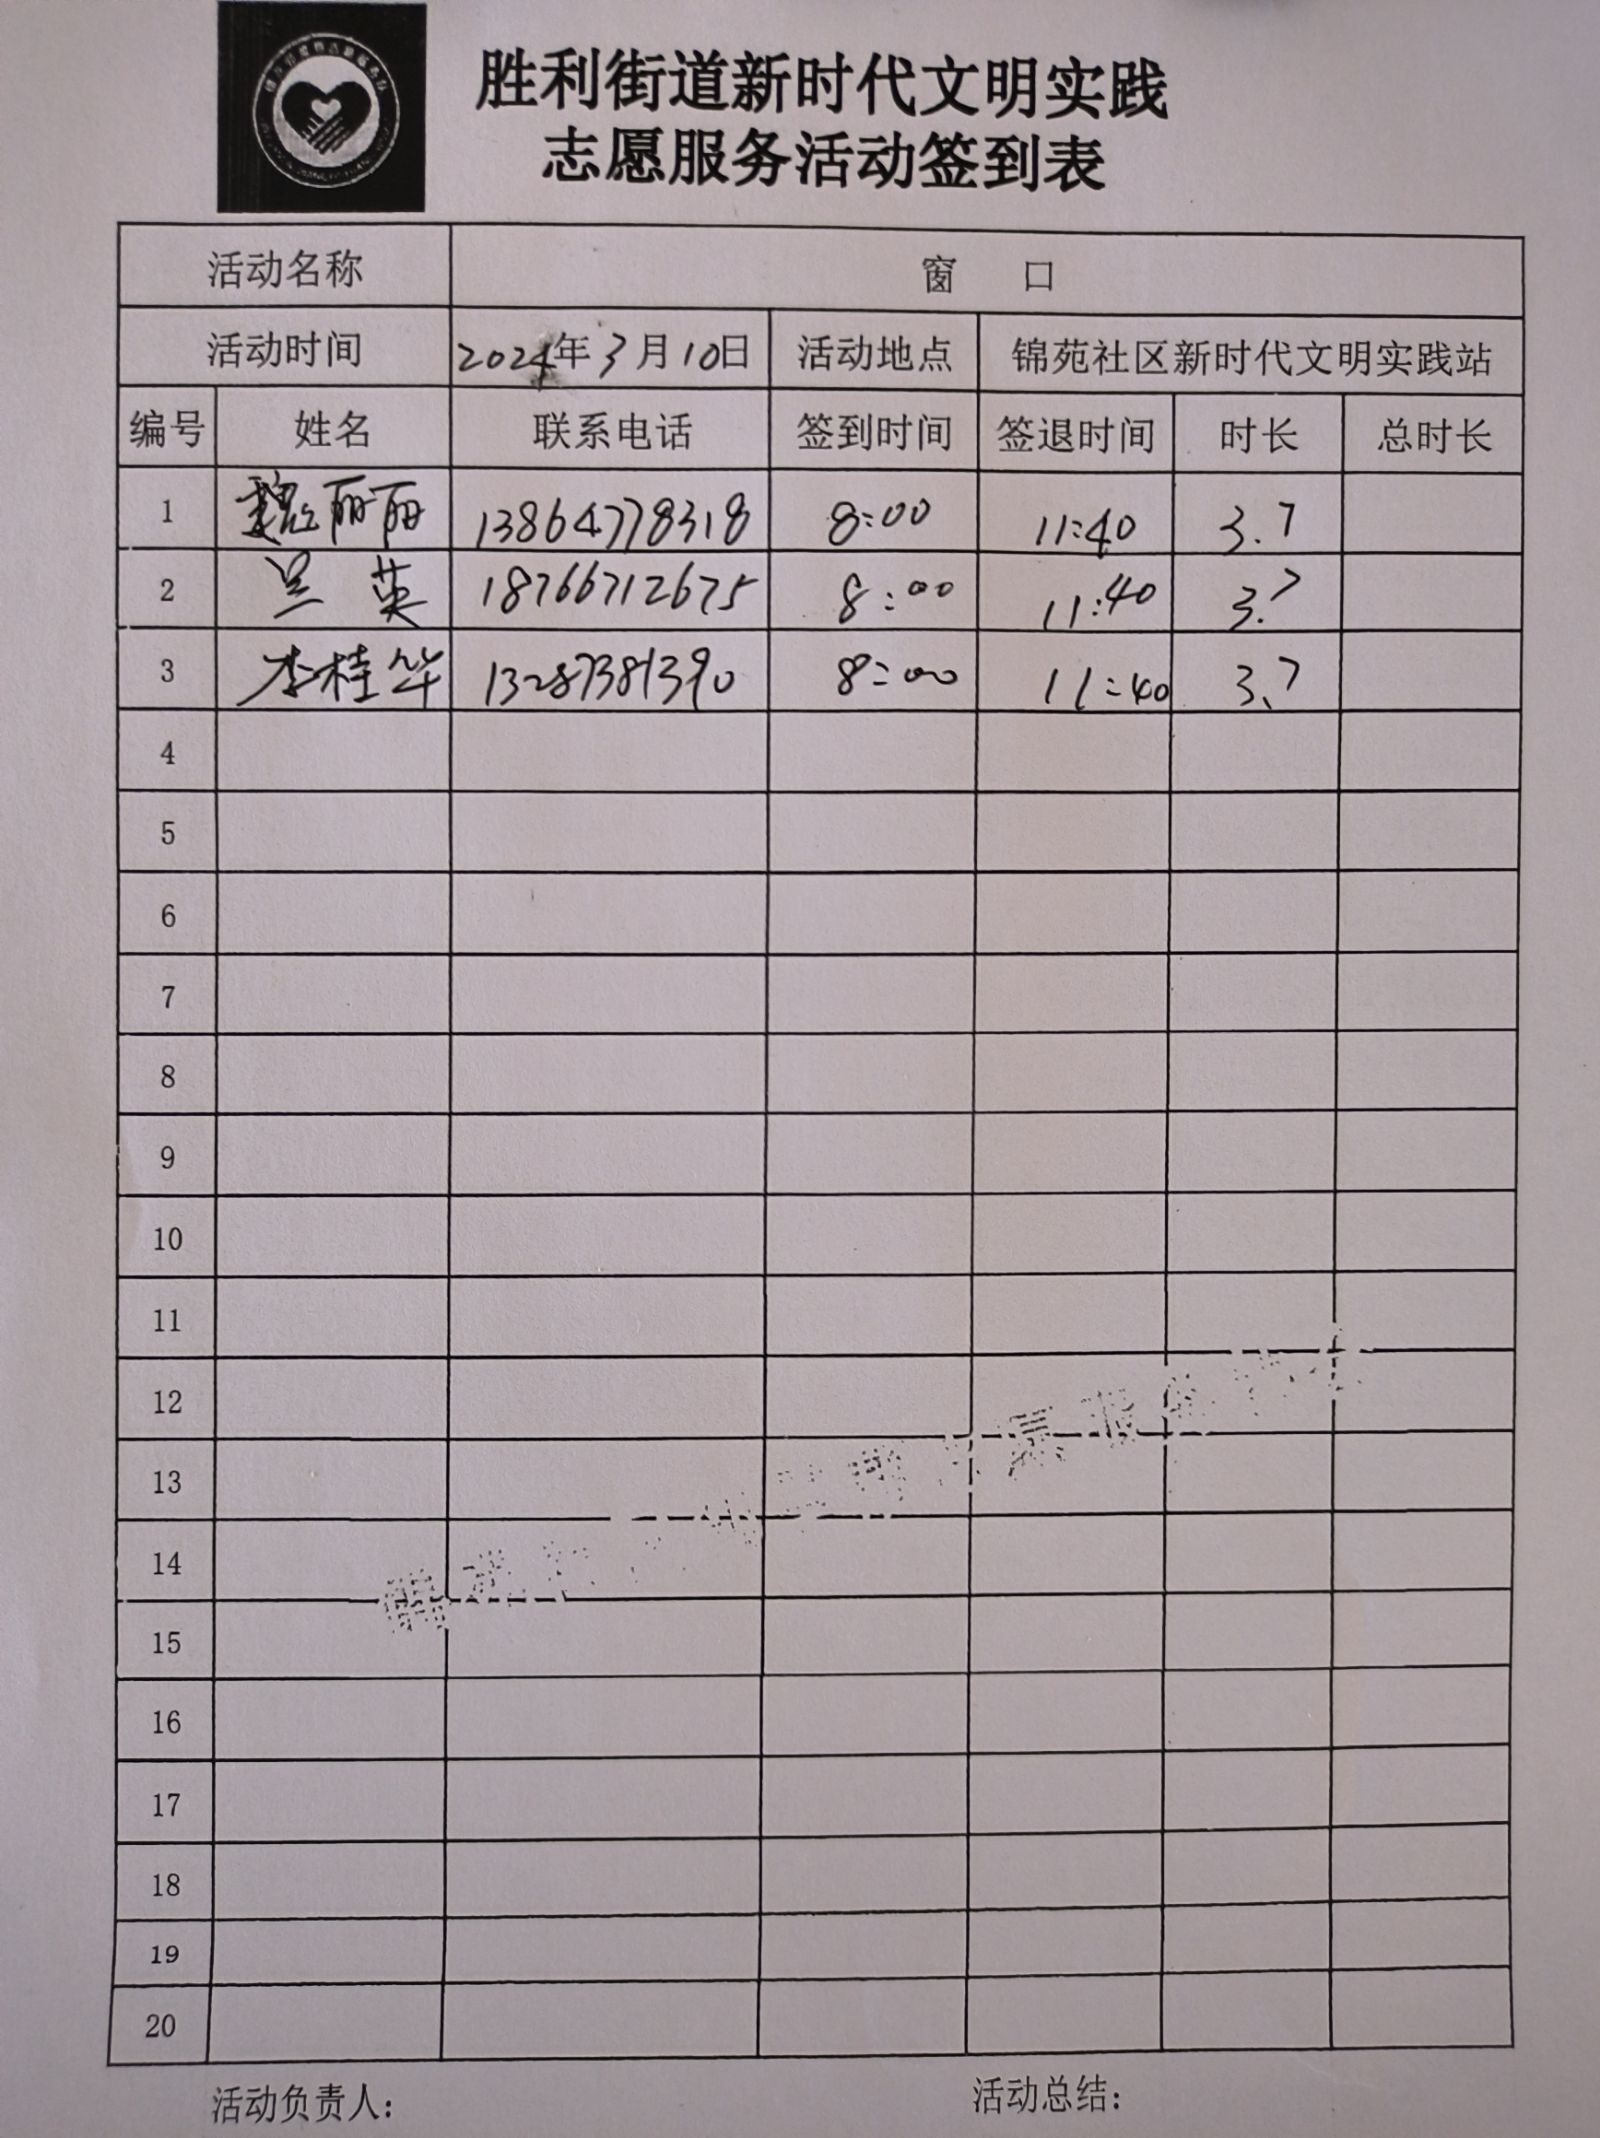 胜利街道新时代文明实践
志愿服务活动签到表
活动名称 窗 口
活动时间 2024年3月10日 活动地点 锦苑社区新时代文明实践站
编号 姓名 联系电话 签到时间 签退时间 时长 总时长
1 魏丽丽 13864778318 8:00 11:40 3.7
2 兰英 18766712675 8:00 11:40 3.7
3 李桂华 13287381390 8:00 11:40 3.7
4
5
6
7
8
9
10
11
12
13
14
15
16
17
18
19
20
活动负责人: 活动总结: